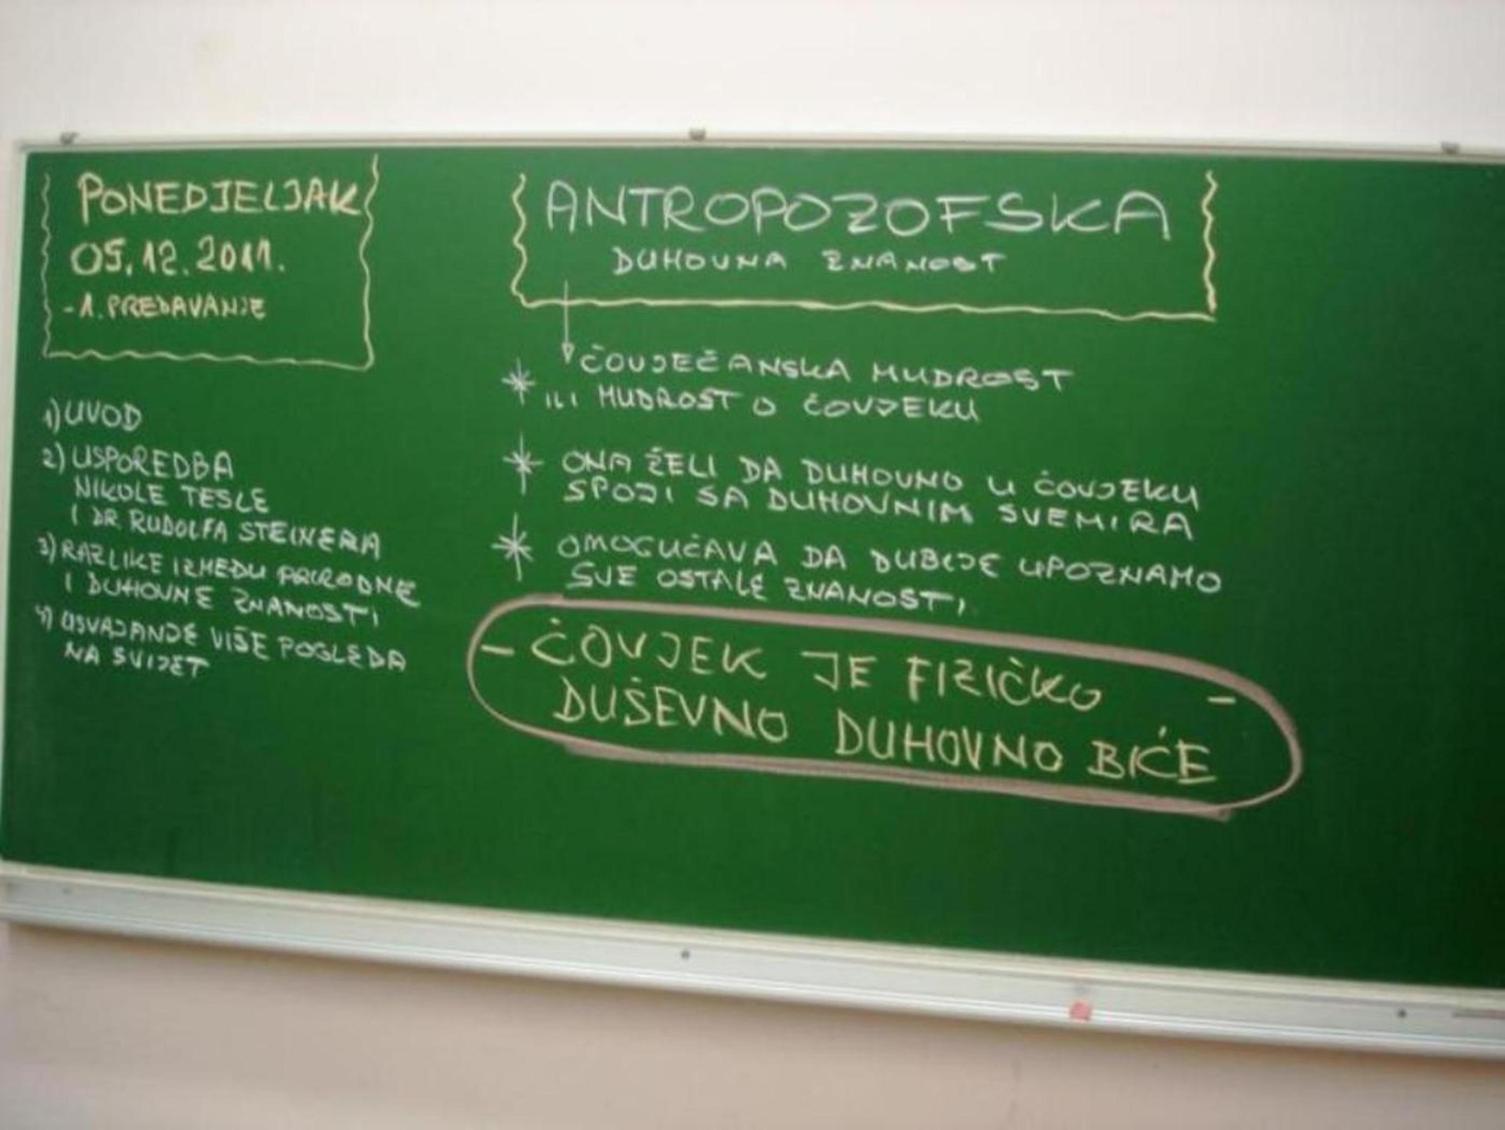 PONEDJELJAK
05.12.2011.
-1. PREDAVANJE
1) UVOD
2) USPOREDBA
NIKOLE TESLE
I DR. RUDOLFA STEINERA
3) RAZLIKE IZMEĐU PRIRODNE
I DUHOVNE ZNANOSTI
4) USVAJANJE VIŠE POGLEDA
NA SVIJET
ANTROPOZOFSKA
DUHOVNA ZNANOST
* ČOVJEČANSKA MUDROST
ILI MUDROST O ČOVJEKU
* ONA ŽELI DA DUHOVNO U ČOVJEKU
SPOJI SA DUHOVNIM SVEMIRA
* OMOGUĆAVA DA DUBIJE UPOZNAMO
SVE OSTALE ZNANOSTI,
- ČOVJEK JE FIZIČKO -
DUŠEVNO DUHOVNO BIĆE